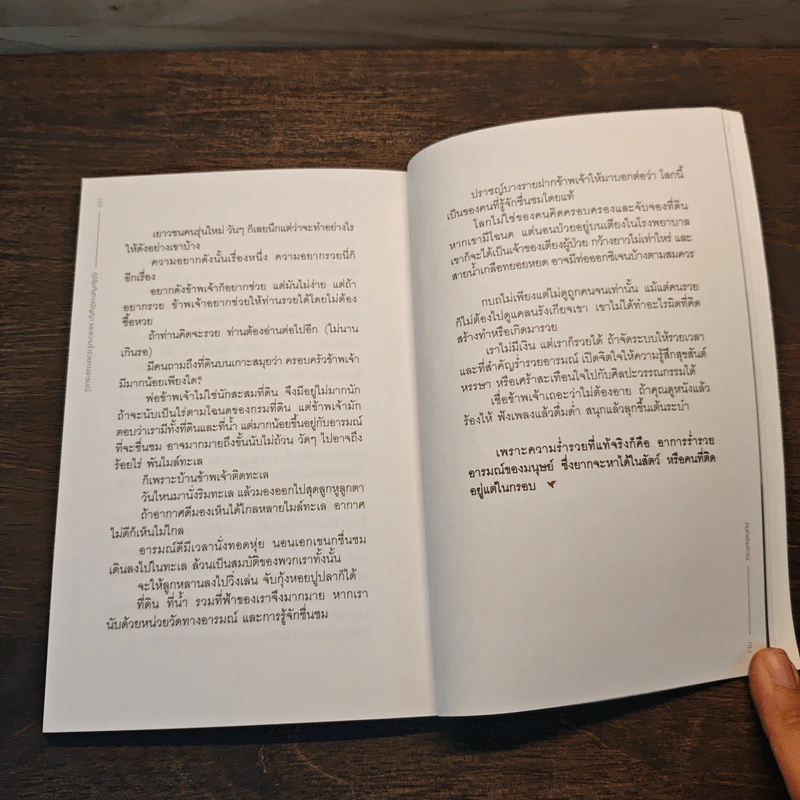 เยาวชนคนรุ่นใหม่ วันๆ ก็เลยนึกแต่ว่าจะทำอย่างไร
ให้ดังอย่างเขาบ้าง
ความอยากดังนั้นเรื่องหนึ่ง ความอยากรวยนี่ก็
อีกเรื่อง
อยากดังข้าพเจ้าก็อยากช่วย แต่มันไม่ง่าย แต่ถ้า
อยากรวย ข้าพเจ้าอยากช่วยให้ท่านรวยได้โดยไม่ต้อง
ซื้อหวย
ถ้าท่านคิดจะรวย ท่านต้องอ่านต่อไปอีก (ไม่นาน
เกินรอ)
มีคนถามถึงที่ดินบนเกาะสมุยว่า ครอบครัวข้าพเจ้า
มีมากน้อยเพียงใด?
พ่อข้าพเจ้าไม่ใช่นักสะสมที่ดิน จึงมีอยู่ไม่มากนัก
ถ้าจะนับเป็นไร่ตามโฉนดของกรมที่ดิน แต่ข้าพเจ้ามัก
ตอบว่าเรามีทั้งที่ดินและที่น้ำ แต่มากน้อยขึ้นอยู่กับอารมณ์
ที่จะชื่นชม อาจมากมายถึงขั้นนับไม่ถ้วน วัดๆ ไปอาจถึง
ร้อยไร่ พันไมล์ทะเล
ก็เพราะบ้านข้าพเจ้าติดทะเล
วันไหนมานั่งริมทะเล แล้วมองออกไปสุดลูกหูลูกตา
ถ้าอากาศดีมองเห็นได้ไกลหลายไมล์ทะเล อากาศ
ไม่ดีก็เห็นไม่ไกล
อารมณ์ดีมีเวลานั่งทอดหุ่ย นอนเอกเขนกชื่นชม
เดินลงไปในทะเล ล้วนเป็นสมบัติของพวกเราทั้งนั้น
จะให้ลูกหลานลงไปวิ่งเล่น จับกุ้งหอยปูปลาก็ได้
ที่ดิน ที่น้ำ รวมที่ฟ้าของเราจึงมากมาย หากเรา
นับด้วยหน่วยวัดทางอารมณ์ และการรู้จักชื่นชม
ปราชญ์บางรายฝากข้าพเจ้าให้มาบอกต่อว่า โลกนี้
เป็นของคนที่รู้จักชื่นชมโดยแท้
โลกไม่ใช่ของคนคิดครอบครองและจับจองที่ดิน
หากเขามีโฉนด แต่นอนป่วยอยู่บนเตียงในโรงพยาบาล
เขาก็จะได้เป็นเจ้าของเตียงผู้ป่วย กว้างยาวไม่เท่าไหร่ และ
สายน้ำเกลือหยอยหยด อาจมีท่อออกซิเจนบ้างตามสมควร
กบถไม่เพียงแต่ไม่ดูถูกคนจนเท่านั้น แม้แต่คนรวย
ก็ไม่ต้องไปดูแคลนรังเกียจเขา เขาไม่ได้ทำอะไรผิดที่คิด
สร้างทำหรือเกิดมารวย
เราไม่มีเงิน แต่เราก็รวยได้ ถ้าจัดระบบให้รวยเวลา
และที่สำคัญร่ำรวยอารมณ์ เปิดจิตใจให้ความรู้สึกสุขสันต์
หรรษา หรือเศร้าสะเทือนใจไปกับศิลปะวรรณกรรมได้
เชื่อข้าพเจ้าเถอะว่าไม่ต้องอาย ถ้าคุณดูหนังแล้ว
ร้องไห้ ฟังเพลงแล้วดื่มด่ำ สนุกแล้วลุกขึ้นเต้นระบำ
เพราะความร่ำรวยที่แท้จริงก็คือ อาการร่ำรวย
อารมณ์ของมนุษย์ ซึ่งยากจะหาได้ในสัตว์ หรือคนที่ติด
อยู่แต่ในกรอบ